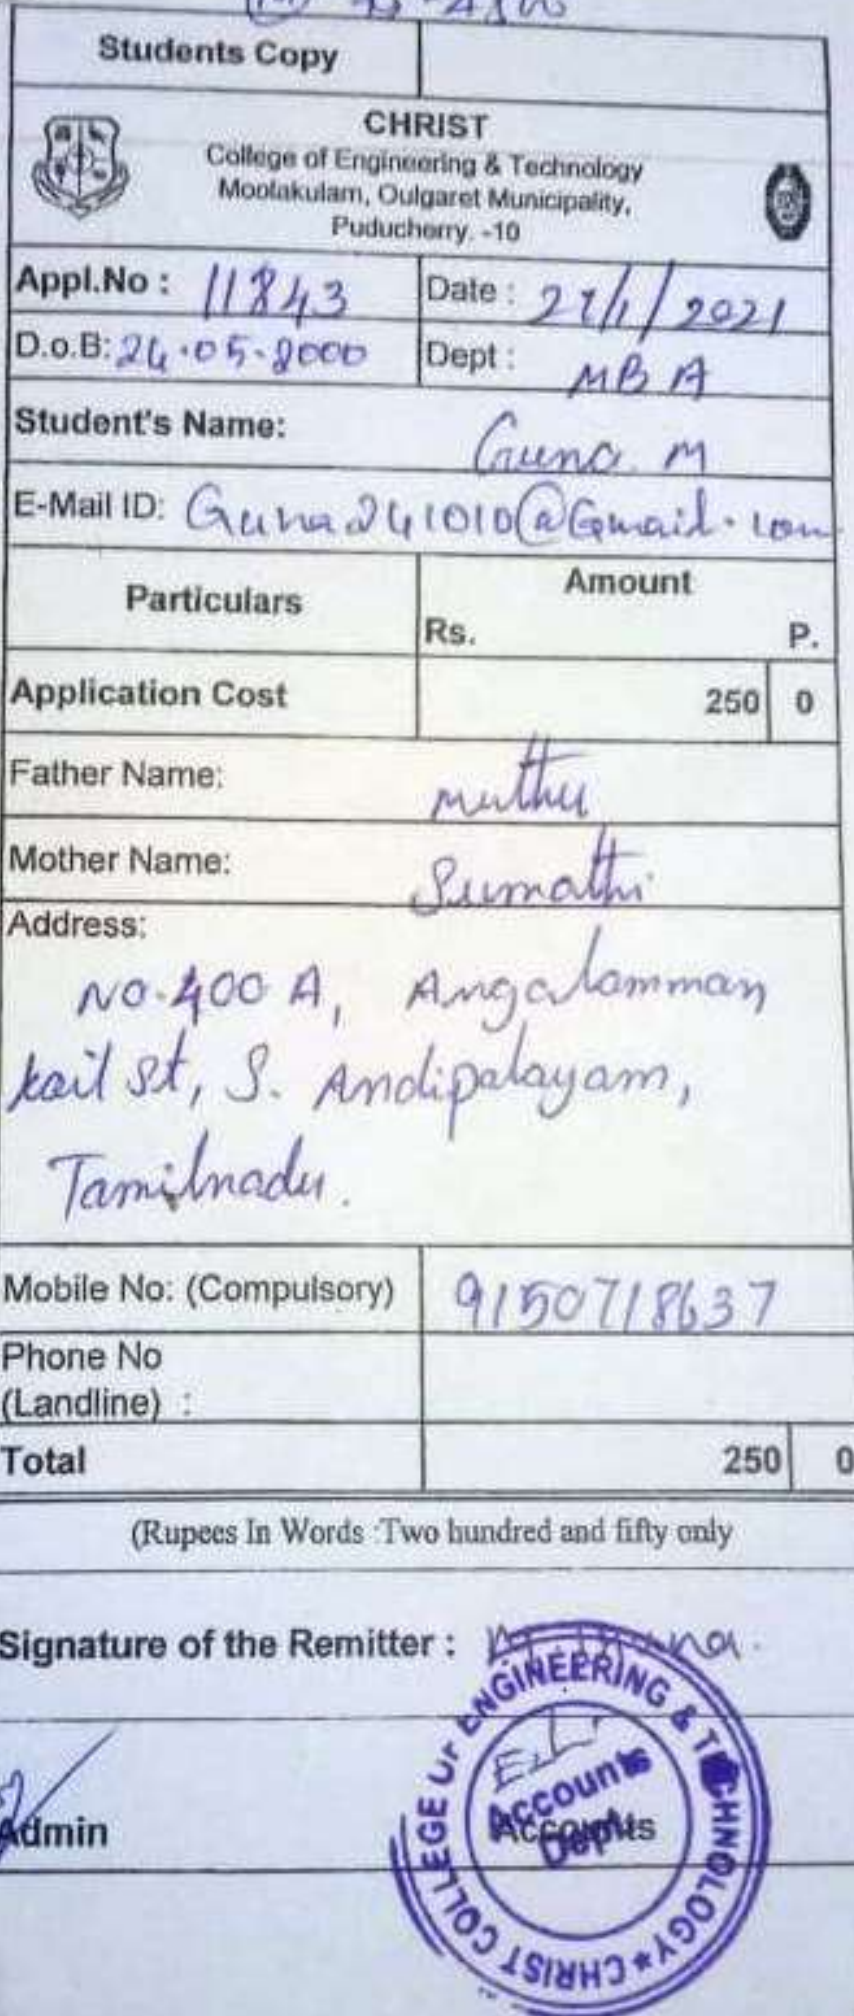 Students Copy
CHRIST
College of Engineering & Technology
Moolakulam, Oulgaret Municipality,
Puducherry. -10
Appl.No : 11843 Date : 27/1/2021
D.o.B: 24.05.2000 Dept : MBA
Student's Name: Guna M
E-Mail ID: Guna241010@Gmail.com
Particulars Amount
Rs. P.
Application Cost 250 0
Father Name: Muthu
Mother Name: Sumathi
Address:
NO.400 A, Angalamman
koil St, S. Andipalayam,
Tamilnadu.
Mobile No: (Compulsory) 9150718637
Phone No
(Landline) :
Total 250 0
(Rupees In Words :Two hundred and fifty only
Signature of the Remitter : M. Guna.
Admin Accounts
CHRIST COLLEGE OF ENGINEERING & TECHNOLOGY *
Accounts
Dept